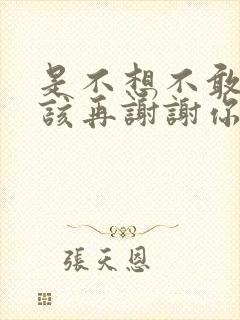 是不想不敢
該再謝謝你
張天恩